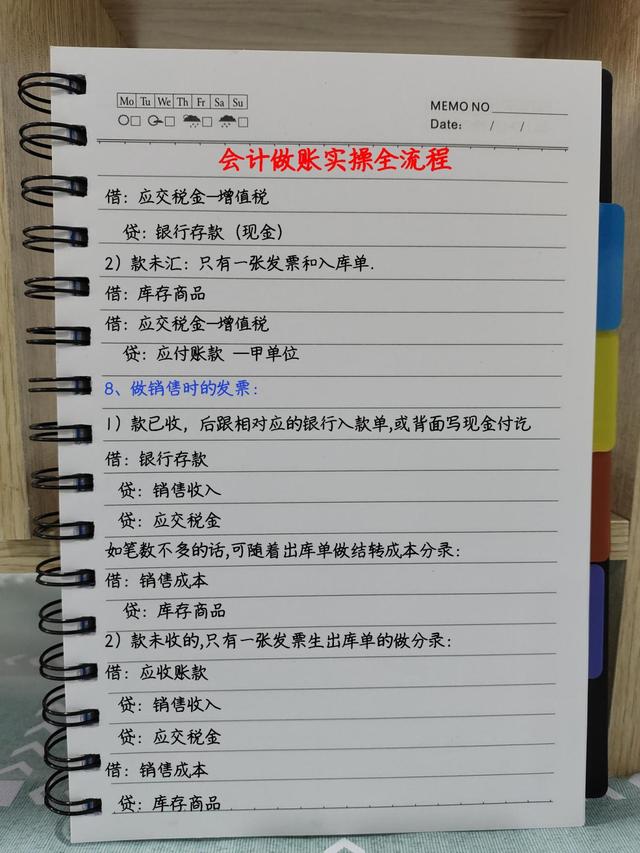 Mo Tu We Th Fr Sa Su
MEMO NO
Date: / /
会计做账实操全流程
借：应交税金—增值税
贷：银行存款（现金）
2）款未汇：只有一张发票和入库单.
借：库存商品
借：应交税金—增值税
贷：应付账款 —甲单位
8、做销售时的发票：
1）款已收，后跟相对应的银行入款单,或背面写现金付讫
借：银行存款
贷：销售收入
贷：应交税金
如笔数不多的话,可随着出库单做结转成本分录：
借：销售成本
贷：库存商品
2）款未收的,只有一张发票生出库单的做分录：
借：应收账款
贷：销售收入
贷：应交税金
借：销售成本
贷：库存商品